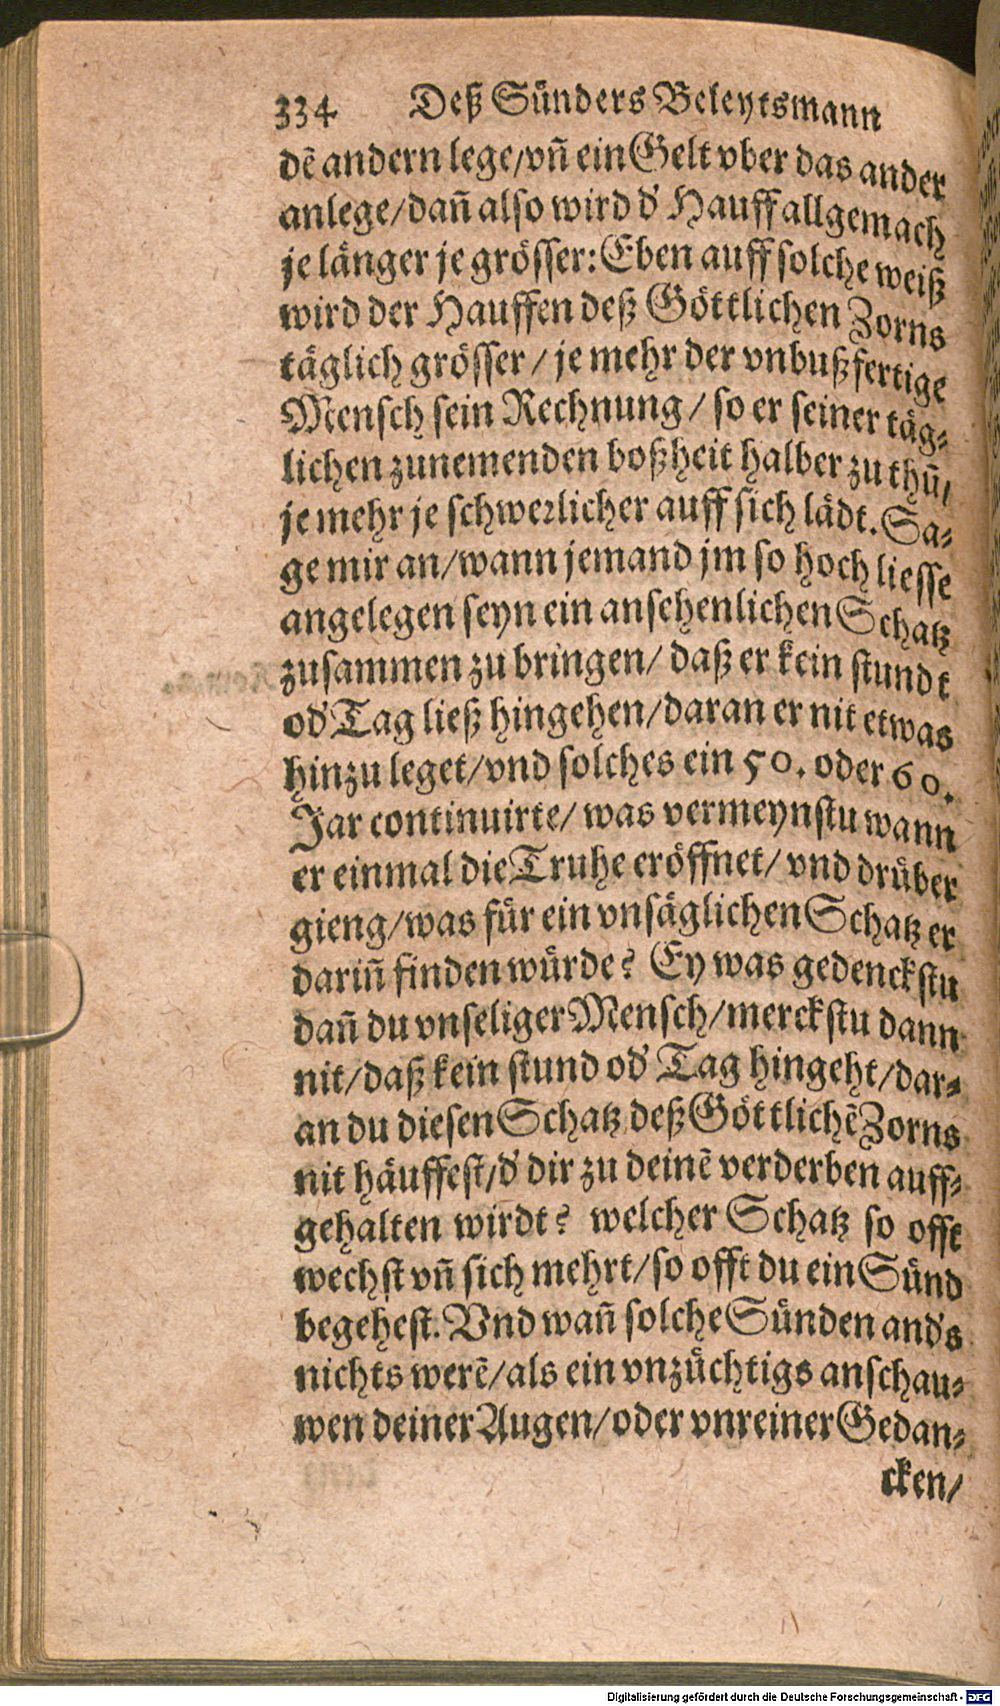 334 Deß Sünders Beleytsmann
dẽ andern lege/vñ ein Gelt vber das ander
anlege/dañ also wird d' Hauff allgemach
je länger je grösser: Eben auff solche weiß
wird der Hauffen deß Göttlichen Zorns
täglich grösser / je mehr der vnbußfertige
Mensch sein Rechnung / so er seiner täg-
lichen zunemenden boßheit halber zu thũ/
je mehr je schwerlicher auff sich lädt. Sa-
ge mir an/wann jemand jm so hoch liesse
angelegen seyn ein ansehenlichen Schatz
zusammen zu bringen/ daß er kein stundt
od' Tag ließ hingehen/daran er nit etwas
hinzu leget/vnd solches ein 50. oder 60.
Jar continuirte/ was vermeynstu wann
er einmal die Truhe eröffnet/ vnd drüber
gieng/was für ein vnsäglichen Schatz er
dariñ finden würde? Ey was gedenckstu
dañ du vnseliger Mensch/merckstu dann
nit/daß kein stund od' Tag hingeht/dar-
an du diesen Schatz deß Göttlichẽ Zorns
nit häuffest/d' dir zu deinẽ verderben auff-
gehalten wirdt? welcher Schatz so offt
wechst vñ sich mehrt/so offt du ein Sünd
begehest. Vnd wañ solche Sünden and's
nichts werẽ/als ein vnzüchtigs anschau-
wen deiner Augen/oder vnreiner Gedan-
cken/
Digitalisierung gefördert durch die Deutsche Forschungsgemeinschaft - DFG